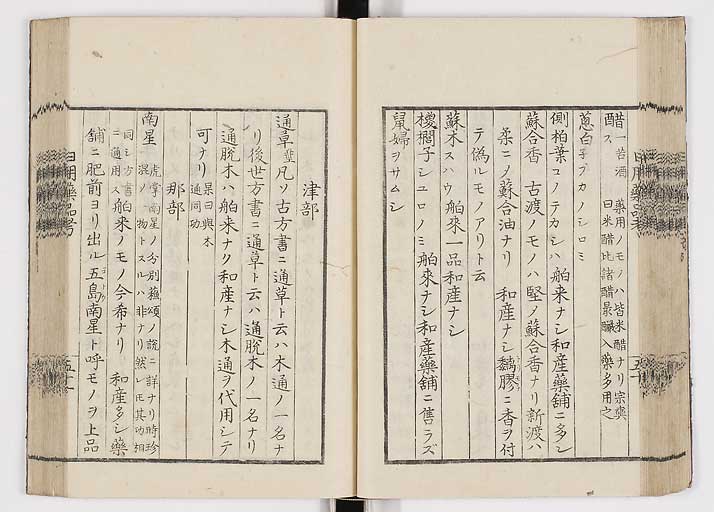 醋一 苦酒 薬用ノモノハ皆米醋ナリ宗奭
醋ス 曰米醋比諸醋最釅入藥多用之
葱白 子ブカノシロミ
側柏葉 コノテカシハ 舶来ナシ和産藥舗ニ多シ
蘇合香 古渡ノモノハ堅ノ蘇合香ナリ新渡ハ
柔ニノ蘇合油ナリ 和産ナシ黐膠ニ香ヲ付
テ偽ルモノアリト云
蘇木 スハウ 舶來一品和産ナシ
椶櫚子 シユロノミ 舶来ナシ和産藥舗ニ售ラズ
鼠婦 ヲサムシ
津部
通草 凡ソ古方書ニ通草ト云ハ木通ノ一名ナ
リ後世方書ニ通草ト云ハ通脱木ノ一名ナリ
通脱木ハ舶来ナク和産ナシ木通ヲ代用シテ
可ナリ 杲曰與木
通同功
那部
南星 虎掌南星ノ分別蘓頌ノ説ニ詳ナリ時珍
混ノ一物トスルハ非ナリ然レ𪜈其功相
同シ方書
ニ通用ス 舶来ノモノ今希ナリ 和産多シ藥
舗ニ肥前ヨリ出ル五島南星ト呼モノヲ上品
日用藥品考
五十一